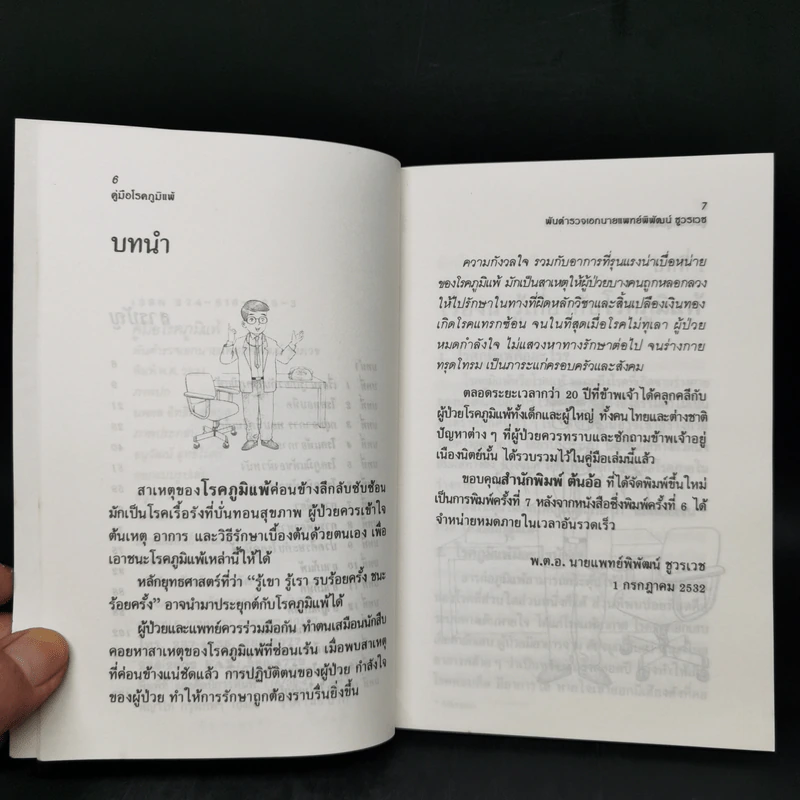 6
คู่มือโรคภูมิแพ้
บทนำ
สาเหตุของโรคภูมิแพ้ค่อนข้างลึกลับซับซ้อน
มักเป็นโรคเรื้อรังที่บั่นทอนสุขภาพ ผู้ป่วยควรเข้าใจ
ต้นเหตุ อาการ และวิธีรักษาเบื้องต้นด้วยตนเอง เพื่อ
เอาชนะโรคภูมิแพ้เหล่านี้ให้ได้
หลักยุทธศาสตร์ที่ว่า “รู้เขา รู้เรา รบร้อยครั้ง ชนะ
ร้อยครั้ง” อาจนำมาประยุกต์กับโรคภูมิแพ้ได้
ผู้ป่วยและแพทย์ควรร่วมมือกัน ทำตนเสมือนนักสืบ
คอยหาสาเหตุของโรคภูมิแพ้ที่ซ่อนเร้น เมื่อพบสาเหตุ
ที่ค่อนข้างแน่ชัดแล้ว การปฏิบัติตนของผู้ป่วย กำลังใจ
ของผู้ป่วย ทำให้การรักษาถูกต้องราบรื่นยิ่งขึ้น
7
พันตำรวจเอกนายแพทย์พิพัฒน์ ชูวรเวช
ความกังวลใจ รวมกับอาการที่รุนแรงน่าเบื่อหน่าย
ของโรคภูมิแพ้ มักเป็นสาเหตุให้ผู้ป่วยบางคนถูกหลอกลวง
ให้ไปรักษาในทางที่ผิดหลักวิชาและสิ้นเปลืองเงินทอง
เกิดโรคแทรกซ้อน จนในที่สุดเมื่อโรคไม่ทุเลา ผู้ป่วย
หมดกำลังใจ ไม่แสวงหาทางรักษาต่อไป จนร่างกาย
ทรุดโทรม เป็นภาระแก่ครอบครัวและสังคม
ตลอดระยะเวลากว่า 20 ปีที่ข้าพเจ้าได้คลุกคลีกับ
ผู้ป่วยโรคภูมิแพ้ทั้งเด็กและผู้ใหญ่ ทั้งคนไทยและต่างชาติ
ปัญหาต่าง ๆ ที่ผู้ป่วยควรทราบและซักถามข้าพเจ้าอยู่
เนืองนิตย์นั้น ได้รวบรวมไว้ในคู่มือเล่มนี้แล้ว
ขอบคุณสำนักพิมพ์ ต้นอ้อ ที่ได้จัดพิมพ์ขึ้นใหม่
เป็นการพิมพ์ครั้งที่ 7 หลังจากหนังสือซึ่งพิมพ์ครั้งที่ 6 ได้
จำหน่ายหมดภายในเวลาอันรวดเร็ว
พ.ต.อ. นายแพทย์พิพัฒน์ ชูวรเวช
1 กรกฎาคม 2532